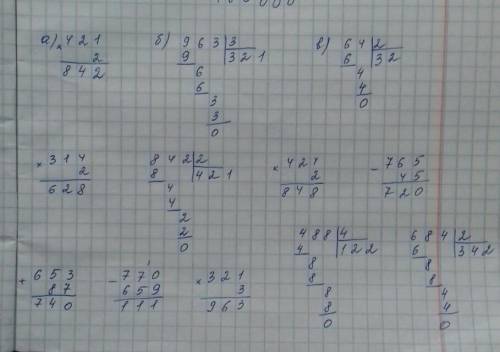 а) × 421   б) 963 | 3   в) 64 | 2
2   9 | 321   6 | 32
842   6   4
6   4
3   0
3
0
× 314   842 | 2   × 424   − 765
2   8 | 421   2   45
628   4   848   720
4
2
2
0
+ 653   − 770   × 321   488 | 4   684 | 2
87   659   3   4 | 122   6 | 342
740   111   963   8   8
8   8
8   4
8   4
0   0